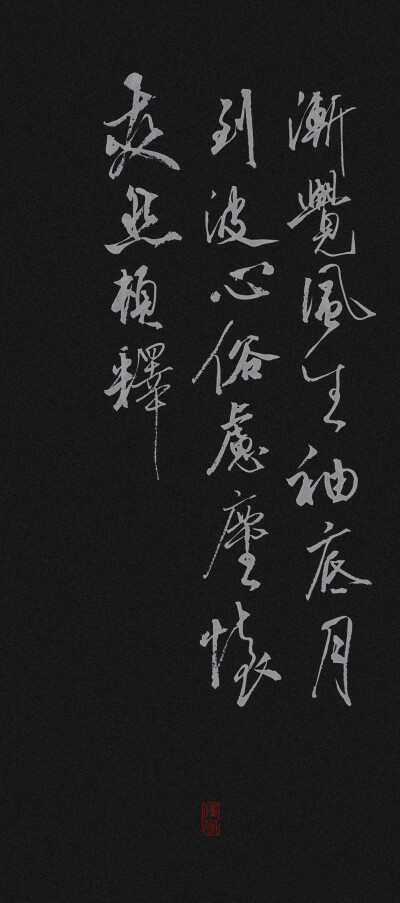 漸覺風生袖底月
到波心俗慮塵懷
爽然頓釋